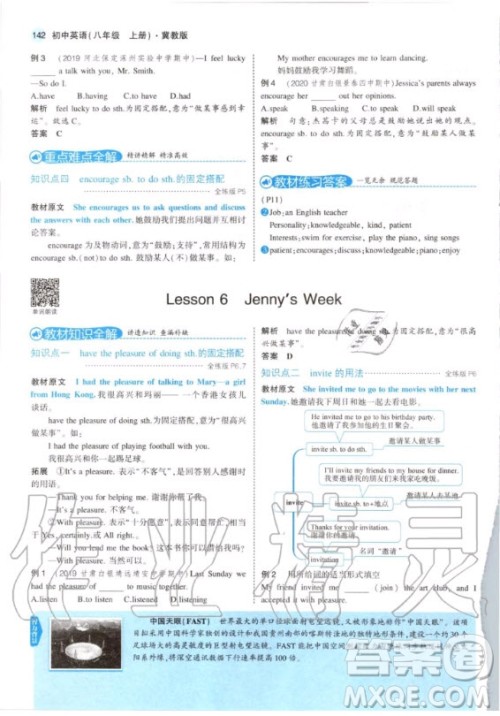 142 初中英语(八年级 上册)·冀教版
例3 (2019河北保定涿州实验中学期中)—I feel lucky
a talk with you, Mr. Smith.
—So do I.
A.have B.having C.to have D.had
解析 feel lucky to do sth.为固定搭配,意为“做某事感到幸
运”。故选C。
答案 C
重点难点全解 精讲精解 精准高效
知识点四 encourage sb. to do sth.的固定搭配
全练版P5
教材原文 She encourages us to ask questions and discuss
the answers with each other. 她鼓励我们提出问题并互相讨
论答案。
encourage为及物动词,意为“鼓励;支持”,常用结构:
encourage sb.(not) to do sth.鼓励某人(不)做某事。如:
My mother encourages me to learn dancing.
妈妈鼓励我学习舞蹈。
例4 (2020甘肃白银景泰四中期中)Jessica's parents always
encourage her out her opinions.
A.speak B.speaking C.to speak D.will speak
解析 句意:杰茜卡的父母总是鼓励她说出她的观点。
encourage sb. to do sth.为固定搭配,意为“鼓励某人做某
事”。故选C。
答案 C
教材练习答案 一览无余 规范答题
(P11)
❷ Job:an English teacher
Personality:knowledgeable, kind, patient
Interests:swim for exercise, play the piano, sing songs
❸ patient;encourages;discuss;knowledgeable;exercise
单词朗读
Lesson 6 Jenny's Week
教材知识全解 讲透知识 查漏补缺
知识点一 have the pleasure of doing sth.的固定搭配
全练版P6、7
教材原文 I had the pleasure of talking to Mary—a girl
from Hong Kong. 我很高兴和玛丽——一个香港女孩儿
谈话。
have the pleasure of doing sth.为固定搭配,意为“很
高兴做某事”。如:
I had the pleasure of playing football with you.
我很高兴和你一起踢足球。
拓展 ①It's a pleasure.表示“不客气”,是回答别人感谢时
的用语。
—Thank you for helping me. 谢谢你帮了我。
—It's a pleasure. 不客气。
②With pleasure.表示“十分愿意”,表示很愿意做某事。
—Will you lend me the book? 这本书你可以借给我
吗?
—With pleasure. 十分愿意。
It's my pleasure. 不客气。
certainly. 或All right.。
例1 (2019甘肃白银靖远靖安中学期中)Last Sunday we
had the pleasure of to music together.
A.listen B.to listen C.listening D.listened
解析
have the pleasure of doing sth.为固定搭配,意为“很高
兴做某事”。故选
答案 D
知识点二 invite的用法 全练版P6
教材原文 She invited me to go to the movies with her next
Sunday. 她邀请我下周日和她一起去看电影。
He invited me to go to his birthday party.
他邀请了我参加他的生日聚会。
邀请某人做某事
invite sb. to do sth.
I'll invite my friends to my house for dinner.
我要邀请我的朋友们来我家吃晚饭。
invite
邀请某人去某地
invite sb. to+地点
Thanks for your invitation.
谢谢你的邀请。
名词“邀请”
invitation
例2 用所给词的适当形式填空
My friend invited me (join) the art club, and I
accepted it with pleasure.
中国天眼(FAST) 世界最大的单口径球面射电望远镜,又被形象地称作“中国天眼”。该项
目采用中国科学家独创的设计和我国贵州南部的喀斯特洼地的独特地形条件,建设一个约30个
足球场大的高灵敏的巨型射电望远镜。FAST能把中国空间测控能力由地球同步轨道延伸至太
阳系外缘,将深空通讯数据下行速率提高100倍。
作业精灵
答案圈
MXQE.COM